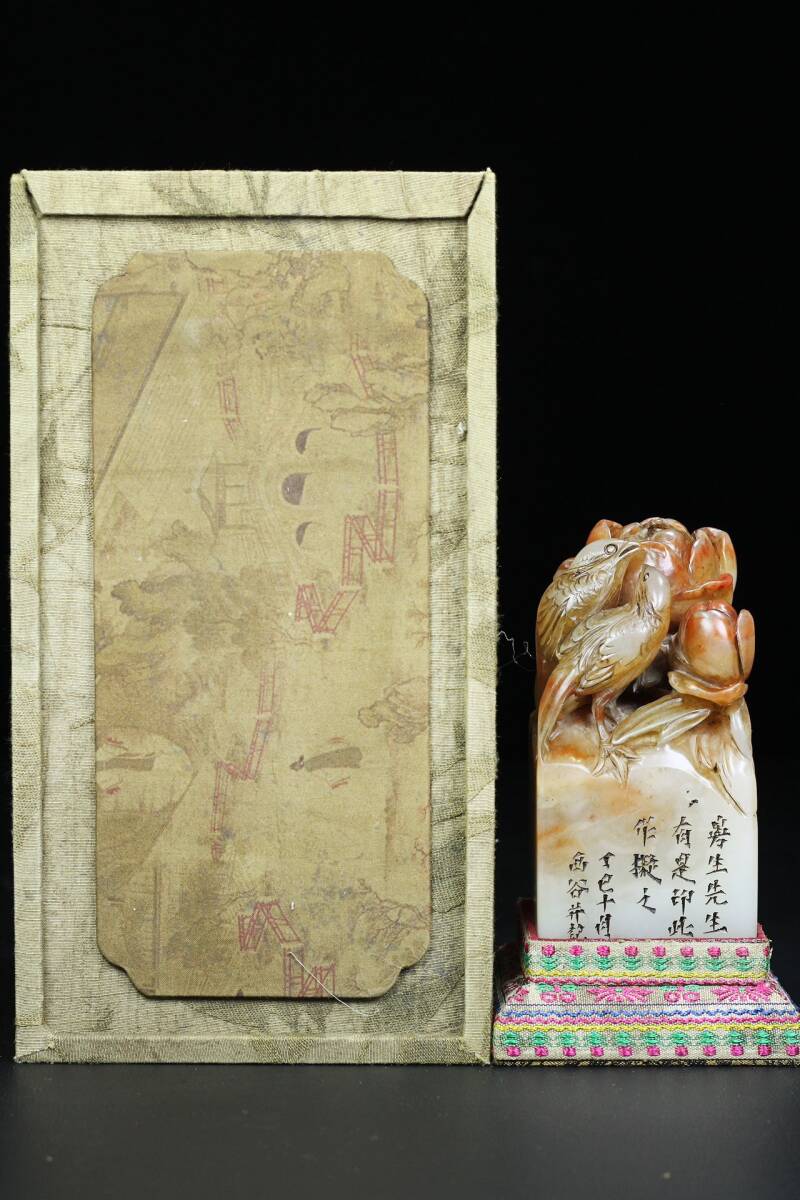 先生
有是印此
作擬之
丁巳十月
西谷并記